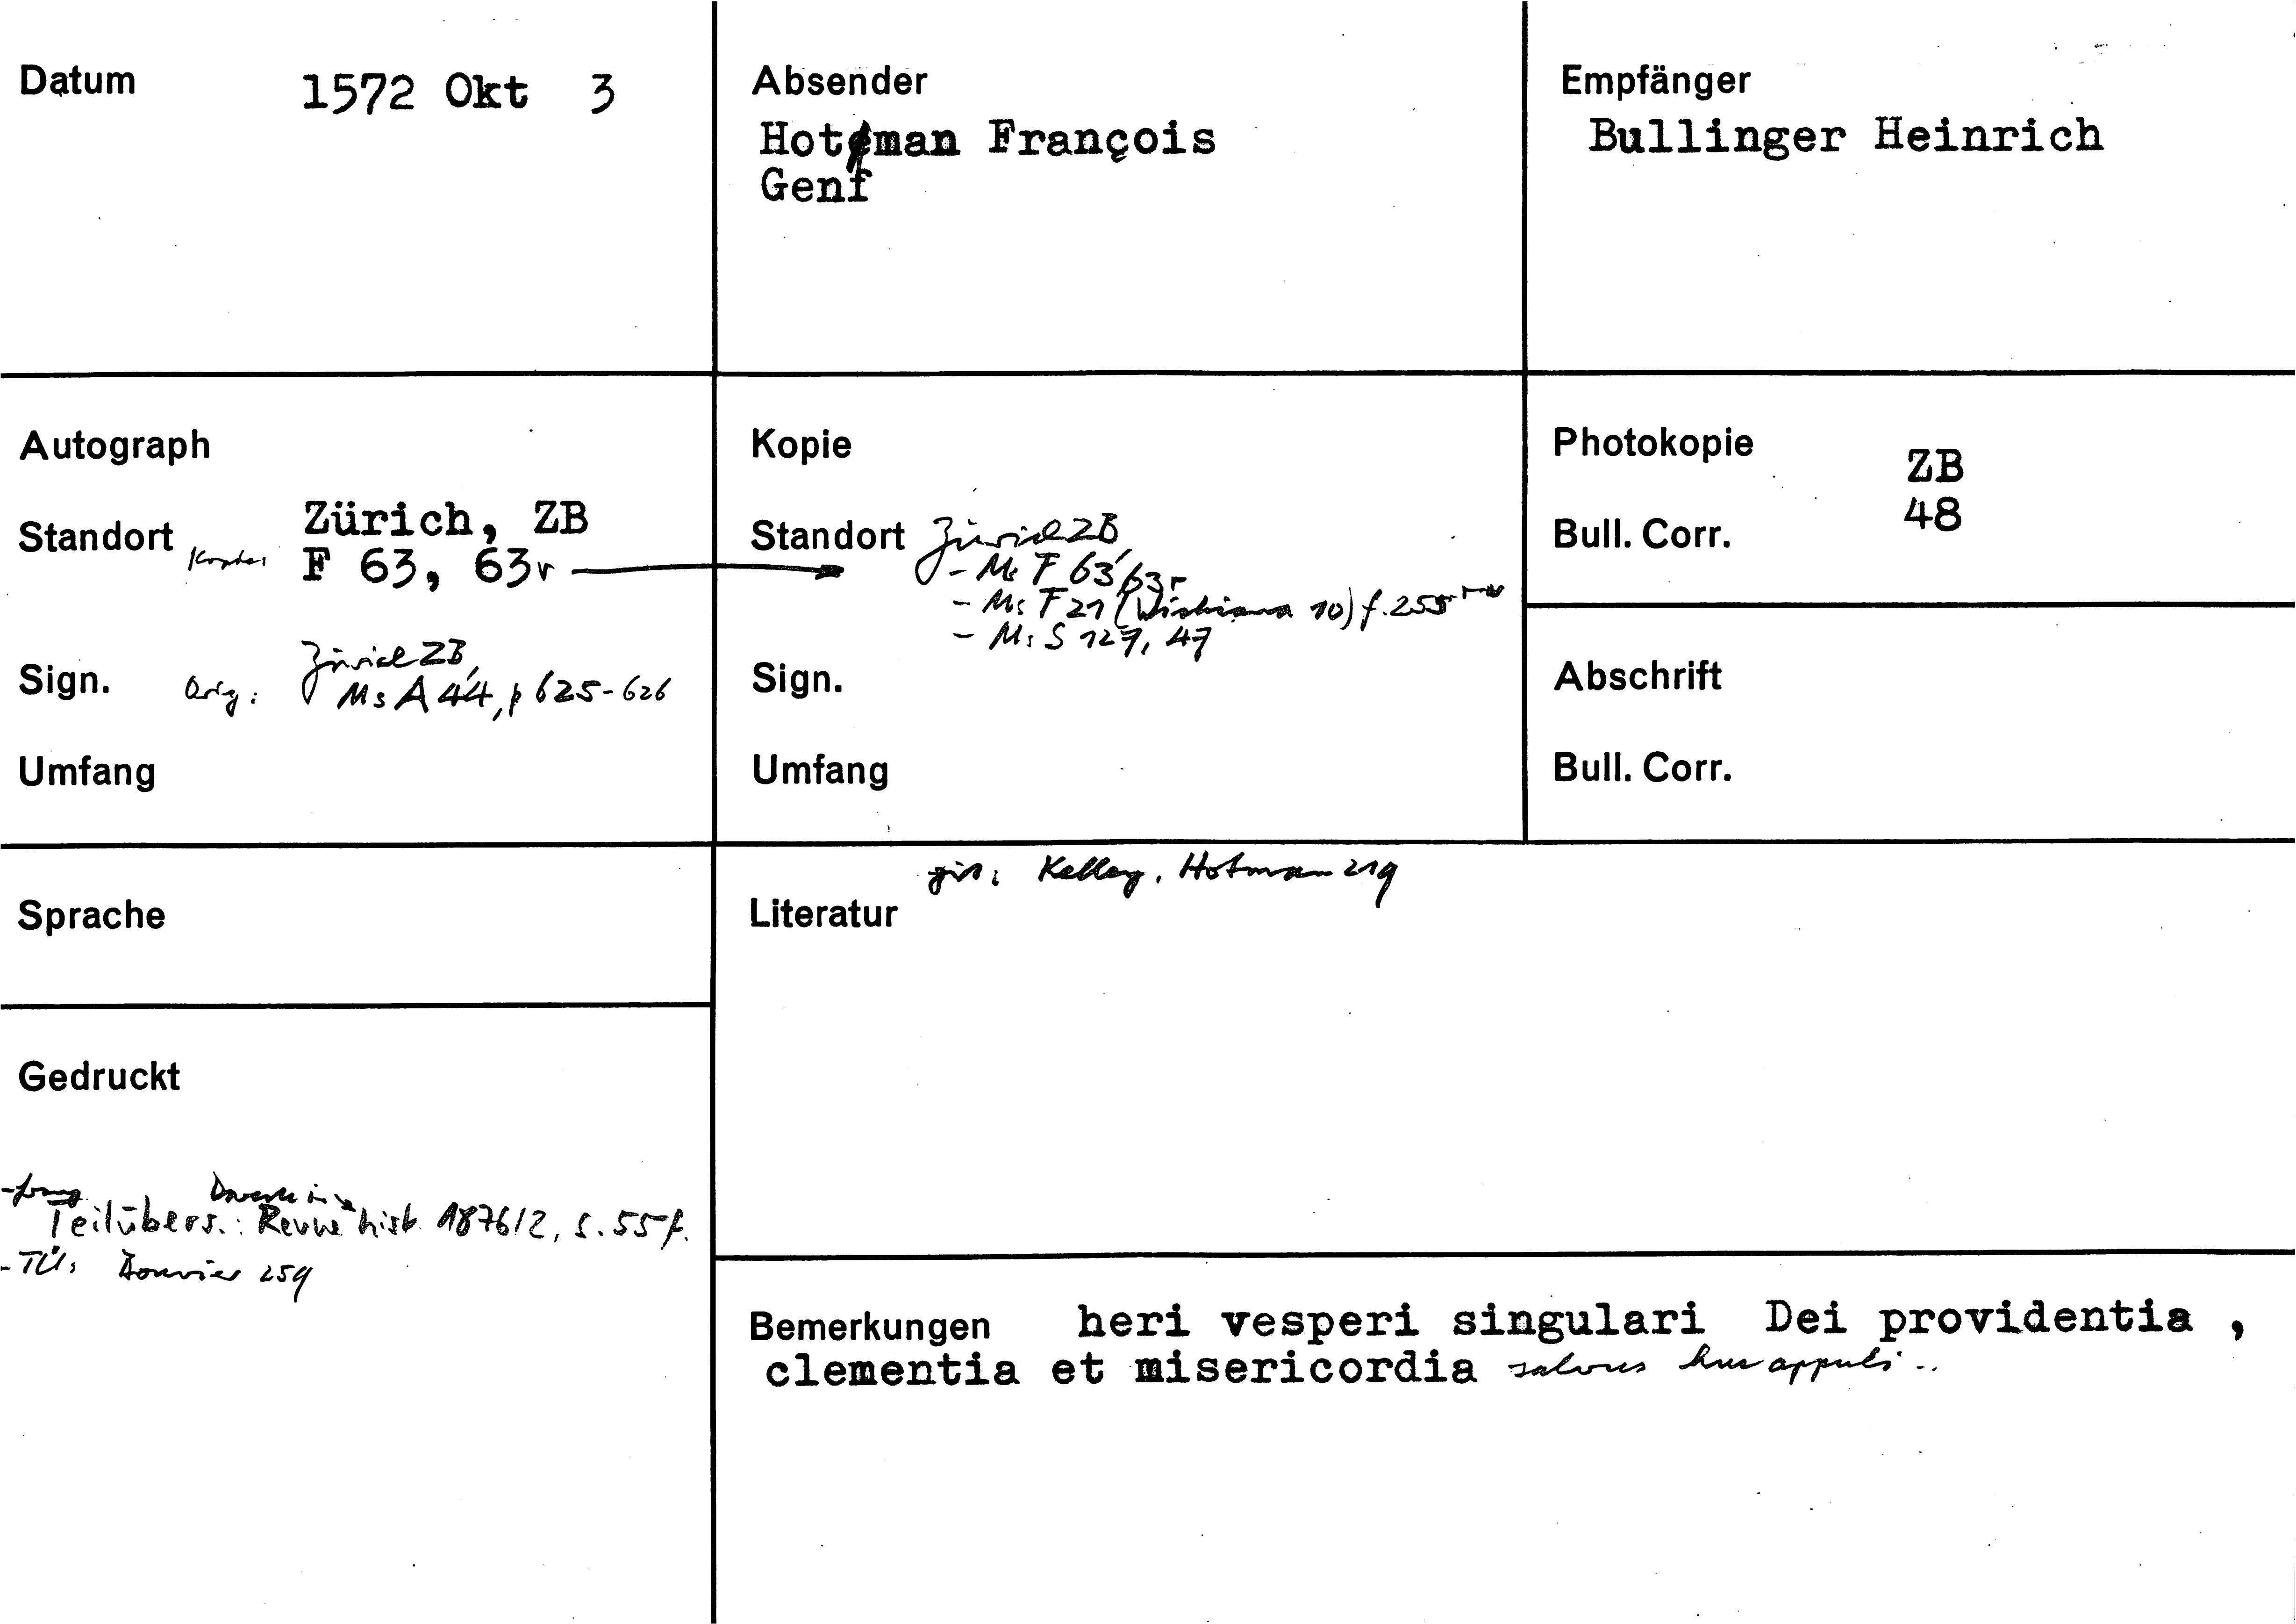 Datum 1572 Okt 3
Absender
Hotman François
Genf
Empfänger
Bullinger Heinrich
Autograph
Standort Zürich, ZB
Kopie: F 63, 63r
Sign. Orig: Zürich ZB,
Ms A 44, p 625-626
Umfang
Kopie
Standort Zürich ZB
- Ms F 63, 63r
- Ms F 21 (Wickiana 10) f. 255
- Ms S 127, 47
Sign.
Umfang
Photokopie ZB
Bull. Corr. 48
Abschrift
Bull. Corr.
Sprache
Literatur
zit: Kelley, Hotman 219
Gedruckt
Teilübers.: Revue hist. 1876/2, S. 55 f.
- TÜ: Bouvier 259
Bemerkungen heri vesperi singulari Dei providentia ,
clementia et misericordia salvus huc appuli..